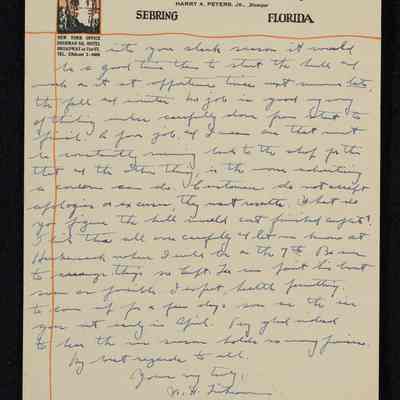 HARRY A. PETERS, Jr., Manager
SEBRING FLORIDA
NEW YORK OFFICE
SHERMAN SQ. HOTEL
BROADWAY at 71st ST.
into your slack season it would
be a good time then to start the hull and
work on it at opportune times next summer
the fall and winter. No job is good
of thing unless carefully done from start to
finish. A poor job, and I mean one that must
be constantly running back to the shop for this
that and the other thing, is the worse advertising
a concern can do. Customers do not accept
apologies or excuses, they want results. What do
you figure the hull would cost finished complete?
this all over carefully and let me know at
where I will be on the 7th. Be sure
to arrange things so Capt. can paint his boat
soon as possible. I expect, health permitting,
to come up for a few days soon as the ice
goes out early in April. Very glad indeed
to hear the new season holds so many
My best regards to all.
Yours very truly,